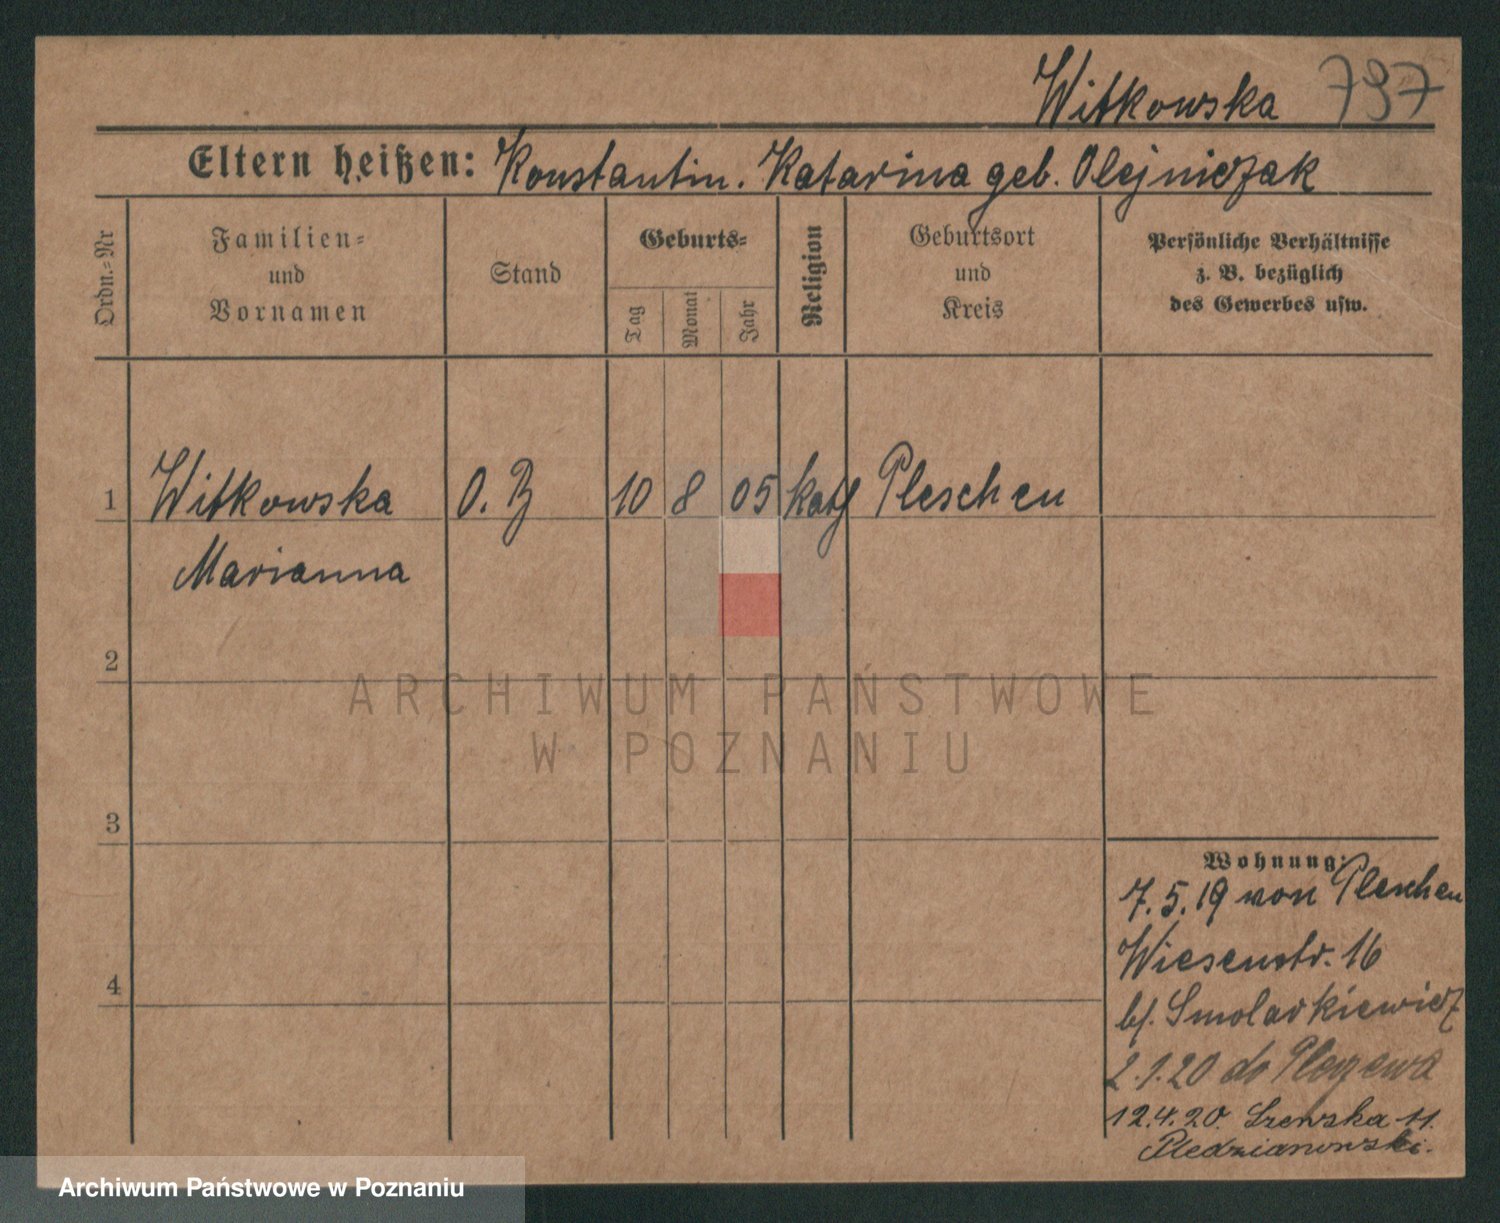 Witkowska 797
Eltern heißen: Konstantin. Katarina geb. Olejniczak
Ordn.=Nr
Familien=
und
Vornamen
Stand
Geburts=
Tag
Monat
Jahr
Religion
Geburtsort
und
Kreis
Persönliche Verhältnisse
z. B. bezüglich
des Gewerbes usw.
1 Witkowska O. B 10 8 05 kath Pleschen
Marianna
2
ARCHIWUM PAŃSTWOWE
W POZNANIU
3
Wohnung:
7.5.19 von Pleschen
Wiesenstr. 16
4
b/. Smolarkiewicz
2.1.20 do Pleszewa
12.4.20. Szewska 11.
Pledzianowski.
Archiwum Państwowe w Poznaniu